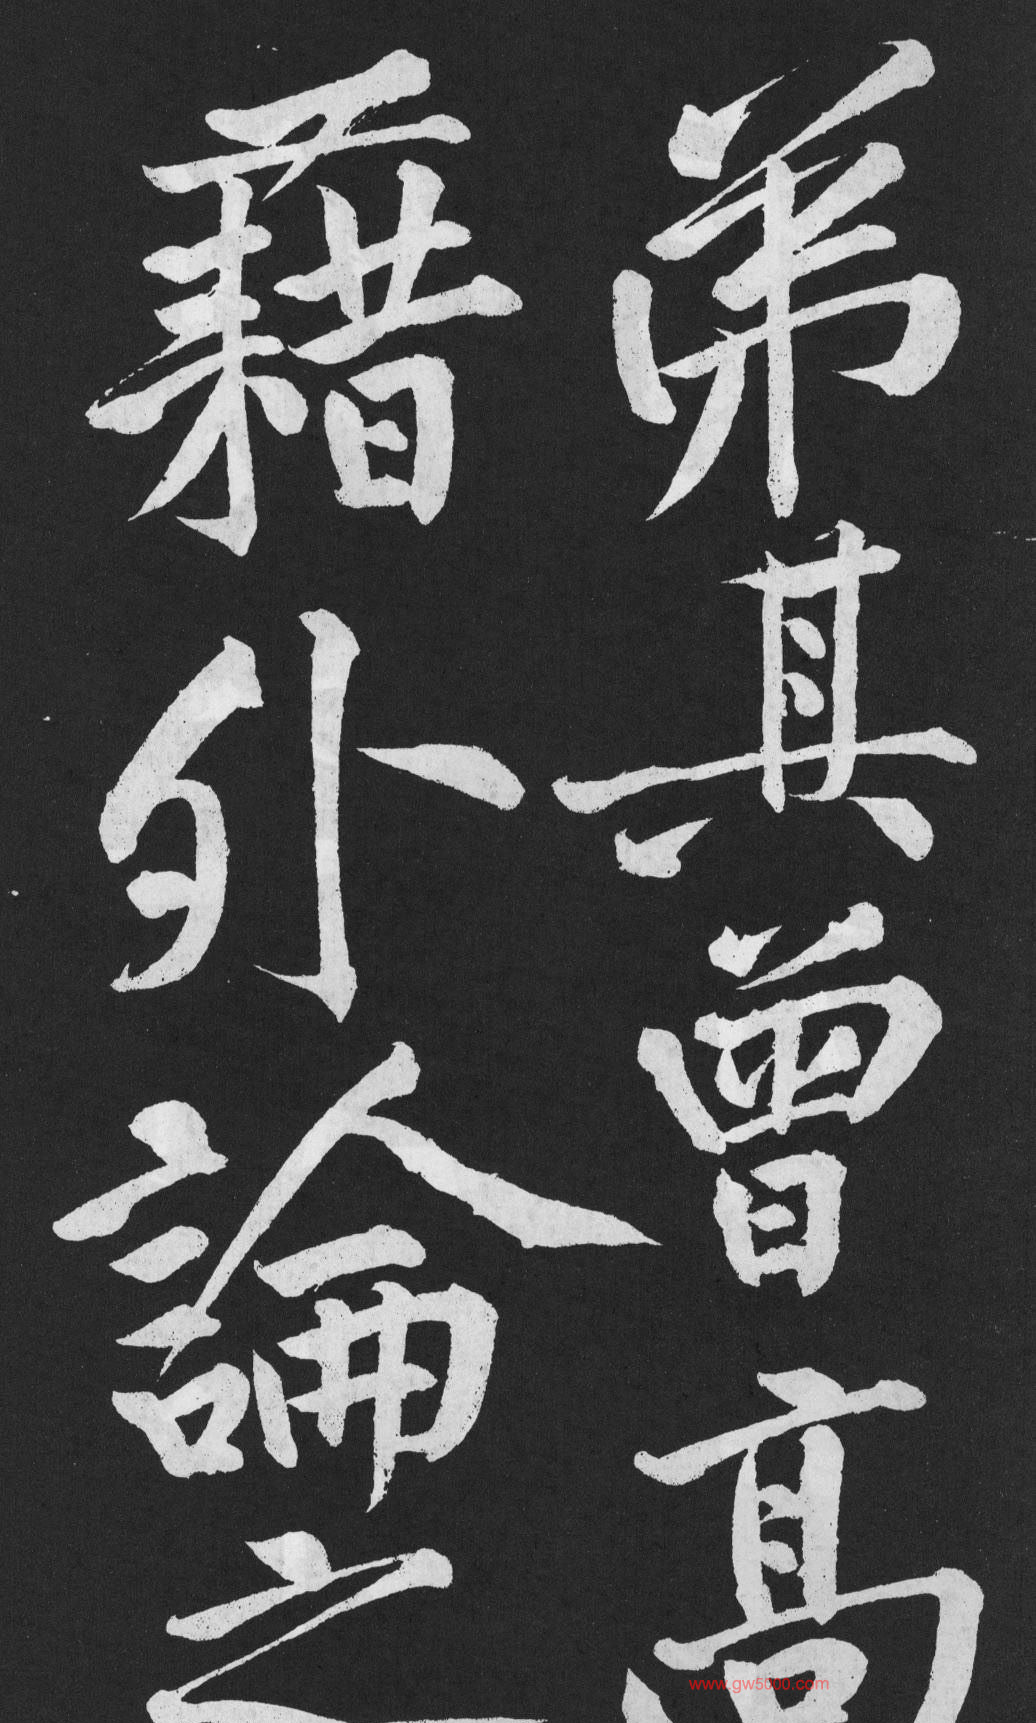 弟其曾高
藉外論之
www.gw5000.com